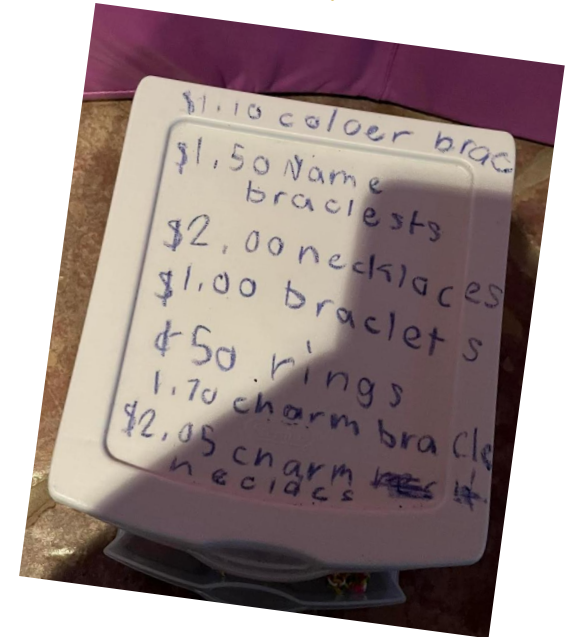 $1.10 coloer brac
$1.50 Name
braclests
$2.00 necklaces
$1.00 braclets
¢50 rings
1.70 charm bracle
$2.05 charm
neclacs